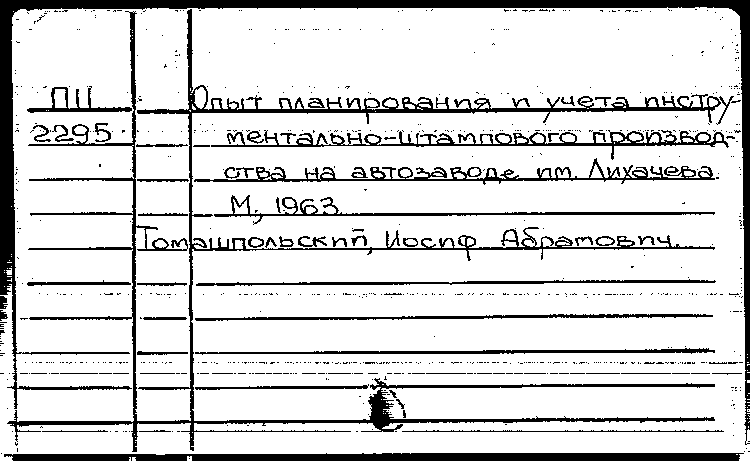 П11
2295
Опыт планирования и учета инстру-
ментально-штампового производ-
ства на автозаводе им. Лихачева.
М., 1963.
Томашпольский, Иосиф Абрамович.